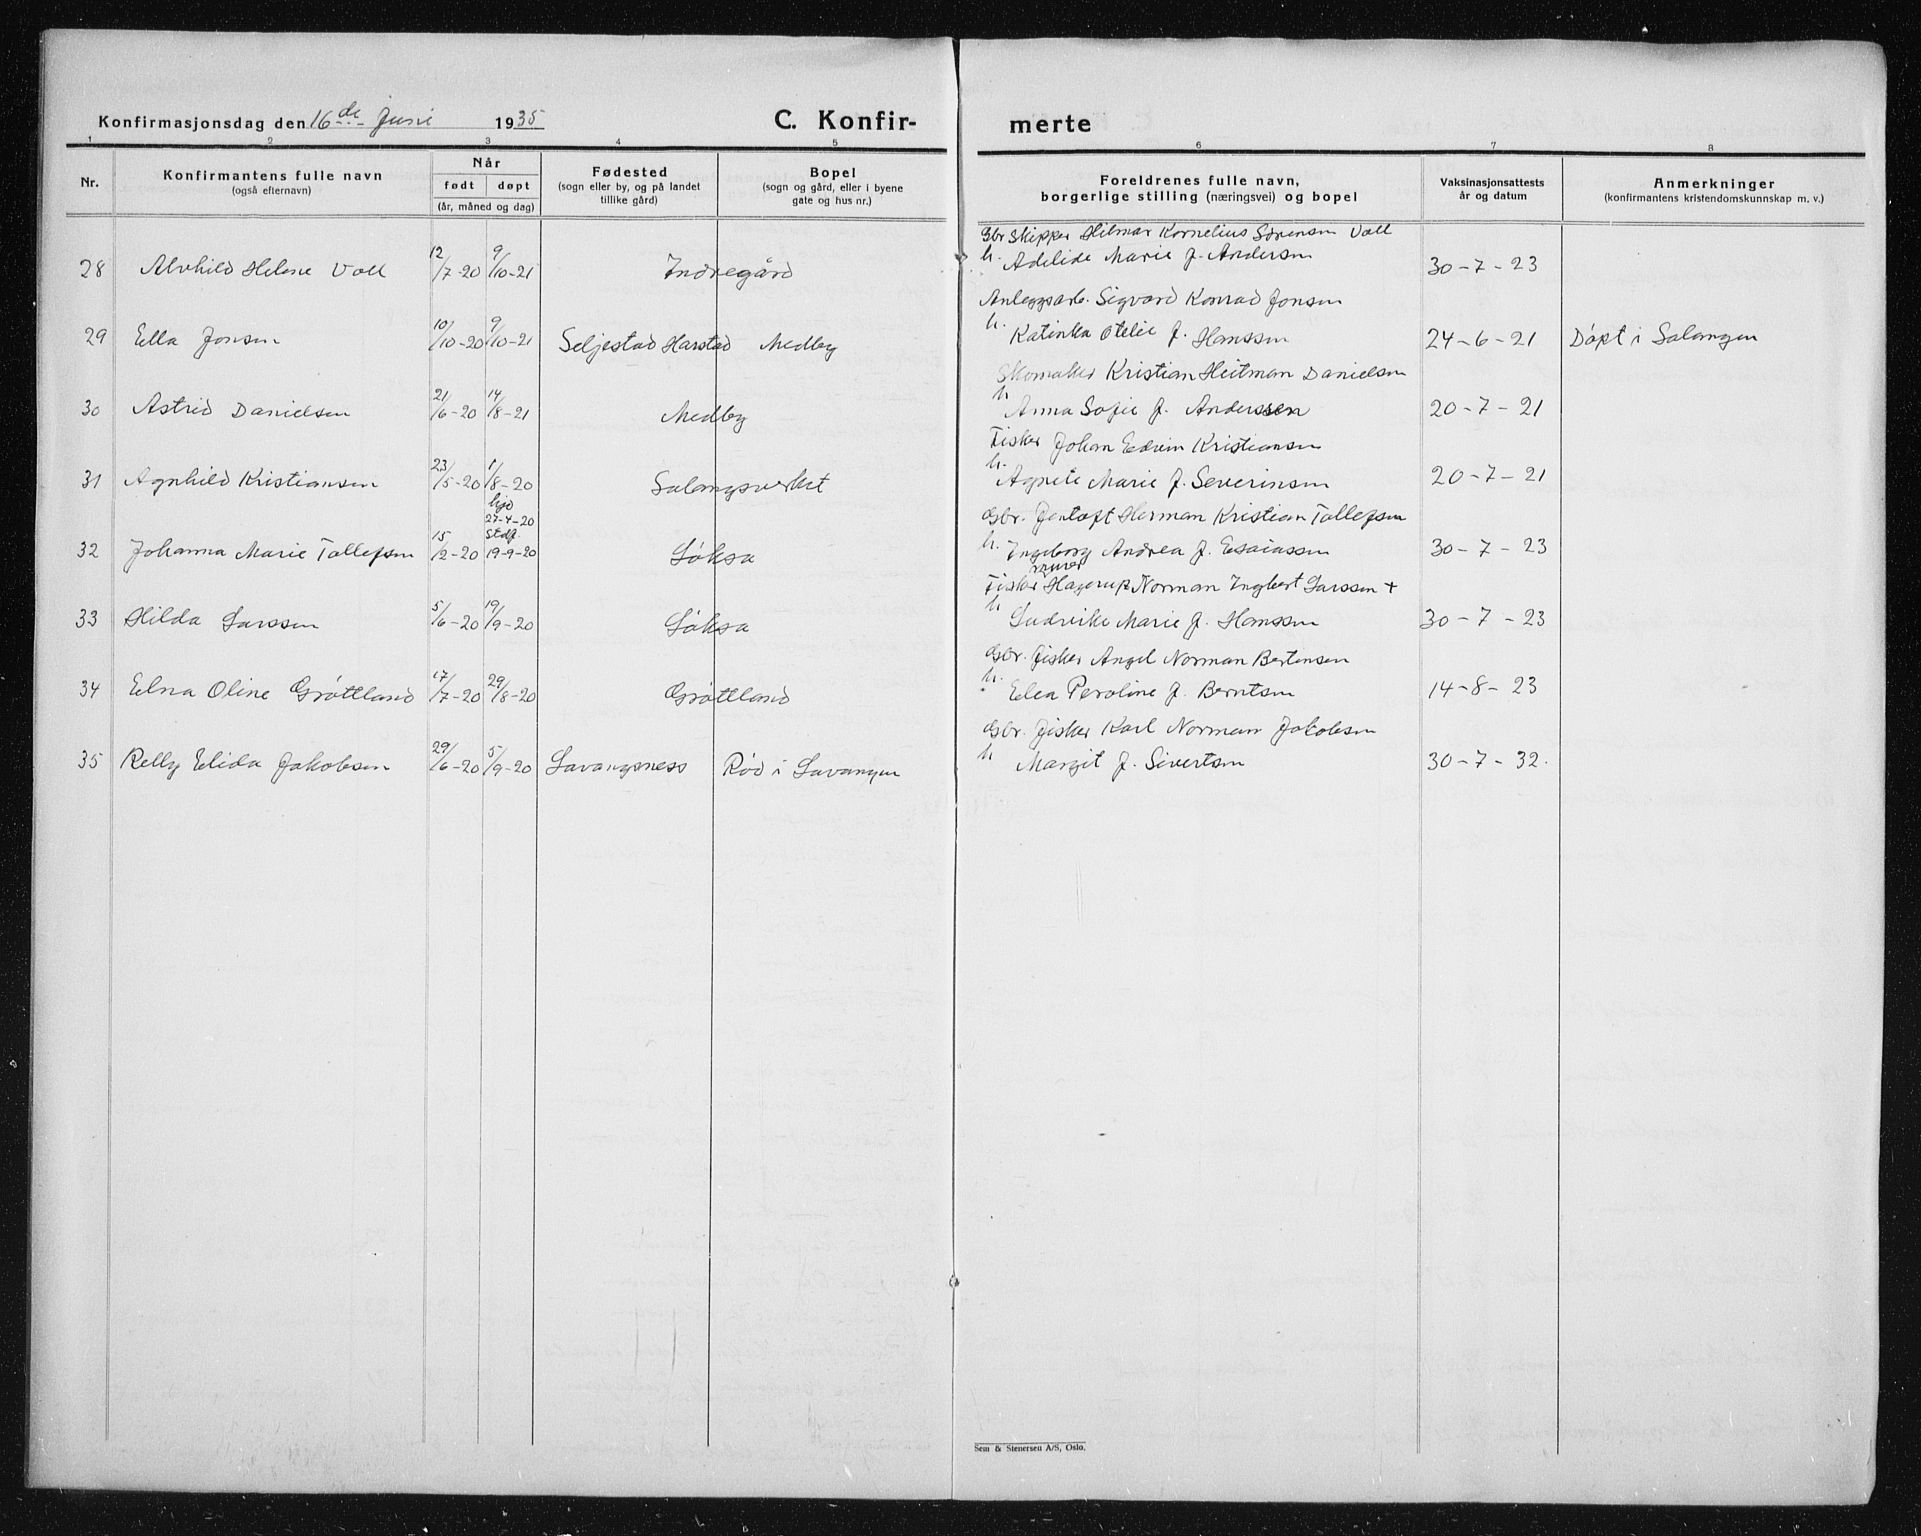 Konfirmasjonsdag den 16de Juni 1935
C. Konfirmerte
1 2 3 4 5 6 7 8
Nr.
Konfirmantens fulle navn
(også efternavn)
Når
født døpt
(år, måned og dag)
Fødested
(sogn eller by, og på landet
tillike gård)
Bopel
(sogn og gård, eller i byene
gate og hus nr.)
Foreldrenes fulle navn,
borgerlige stilling (næringsvei) og bopel
Vaksinasjonsattests
år og datum
Anmerkninger
(konfirmantens kristendomskunnskap m. v.)
Gbr Skipper Hilmar Kornelius Sørensen Voll
28 Alvhild Helene Voll 12/7-20 9/10-21 Indregård h. Adelide Marie f. Andersen 30-7-23
Anleggsarb. Sigvard Konrad Jonsen
29 Ella Jonsen 10/10-20 9/10-21 Seljestad Harstad Medby h. Katinka Otelie f. Hanssen 24-6-21 Døpt i Salangen
Skomaker Kristian Heitman Danielsen
30 Astrid Danielsen 21/6-20 14/8-21 Medby h. Anna Sofie f. Anderssen 20-7-21
Fisker Johan Edvin Kristiansen
31 Agnhild Kristiansen 23/5-20 1/8-20 Salangsverket h. Agnete Marie f. Severinsen 20-7-21
hjd
27-4-20
Gbr. Jentoft Herman Kristian Tollefsen
stadf.
32 Johanna Marie Tollefsen 15/2-20 19-9-20 Løksa h. Ingeborg Andrea f. Esaiassen 30-7-23
murer
Fisker Hagerup Norman Ingbert Larssen +
33 Hilda Larssen 5/6-20 19/9-20 Løksa h. Ludvike Marie f. Hanssen 30-7-23
Gbr. fisker Angel Norman Bertensen
34 Elna Oline Grøttland 17/7-20 29/8-20 Grøttland h. Elea Peroline f. Berntsen 14-8-23
Gbr. fisker Karl Norman Jakobsen
35 Relly Elida Jakobsen 29/6-20 5/9-20 Lavangsness Rød i Lavangen h Margit f. Sivertsen 30-7-32.
Sem & Stenersen A/S, Oslo.